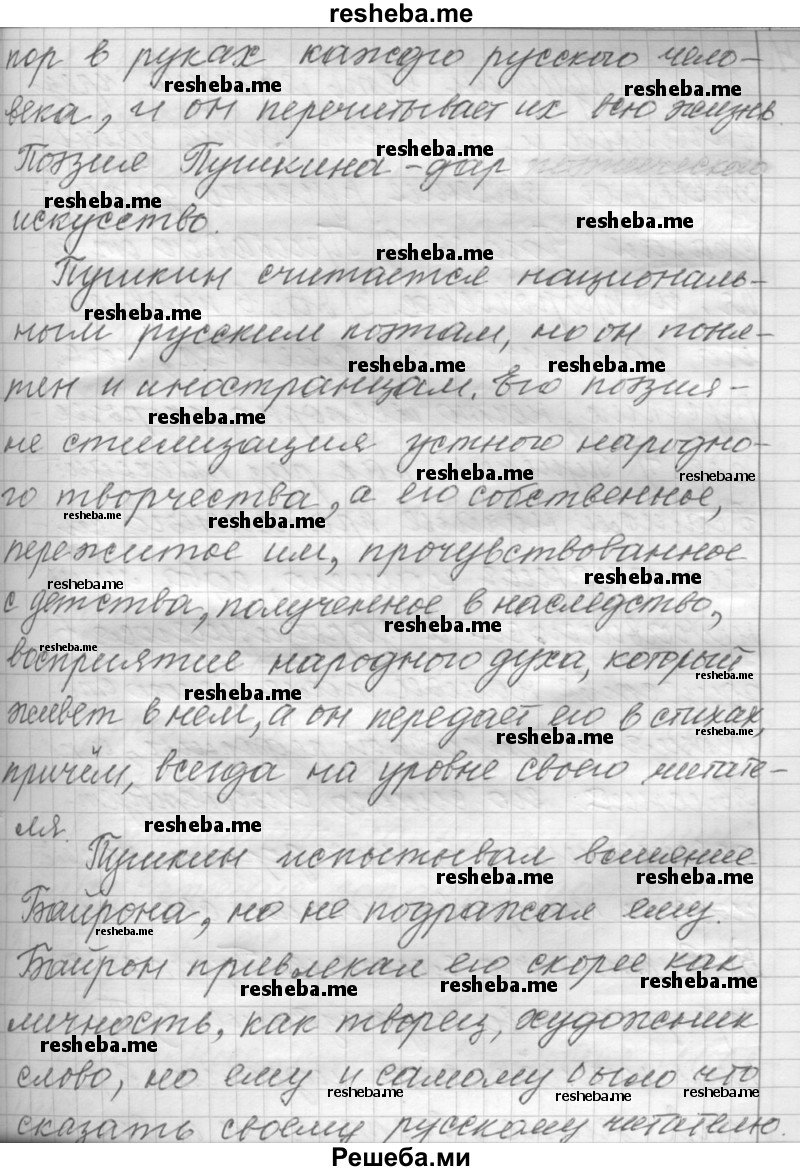 resheba.me
пор в руках каждого русского чело-
века, и он перечитывает их всю жизнь.
Поэзия Пушкина - дар
искусство.
Пушкин считается националь-
ным русским поэтам, но он поня-
тен и иностранцам. Его поэзия -
не стилизация устного народно-
го творчества, а его собственное,
пережитое им, прочувствованное
с детства, полученное в наследство,
восприятие народного духа, который
живет в нем, а он передает его в стихах,
причём, всегда на уровне своего читате-
ля.
Пушкин испытывал влияние
Байрона, но не подражал ему.
Байрон привлекал его скорее как
личность, как творец, художник
слово, но ему и самому было что
сказать своему русскому читателю.
Решеба.ми